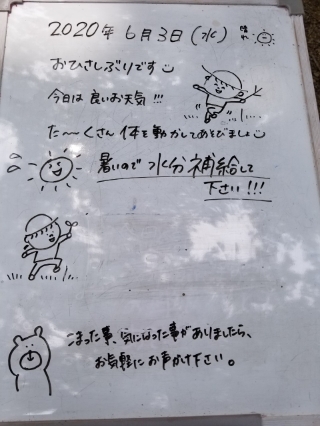 2020年 6月3日(水) 晴れ
おひさしぶりです
今日は良いお天気!!!
た〜くさん体を動かしてあそびましょ
暑いので 水分補給して
下さい!!!
こまった事、気になった事がありましたら、
お気軽にお声かけ下さい。